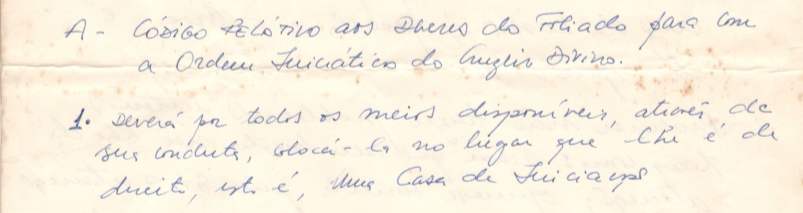 A - Código Relativo aos Deveres do Filiado para com
a Ordem Iniciática do Cruzeiro Divino.
1. Deverá por todos os meios disponíveis, através de
sua conduta, colocá-la no lugar que lhe é de
direito, isto é, uma Casa de Iniciação